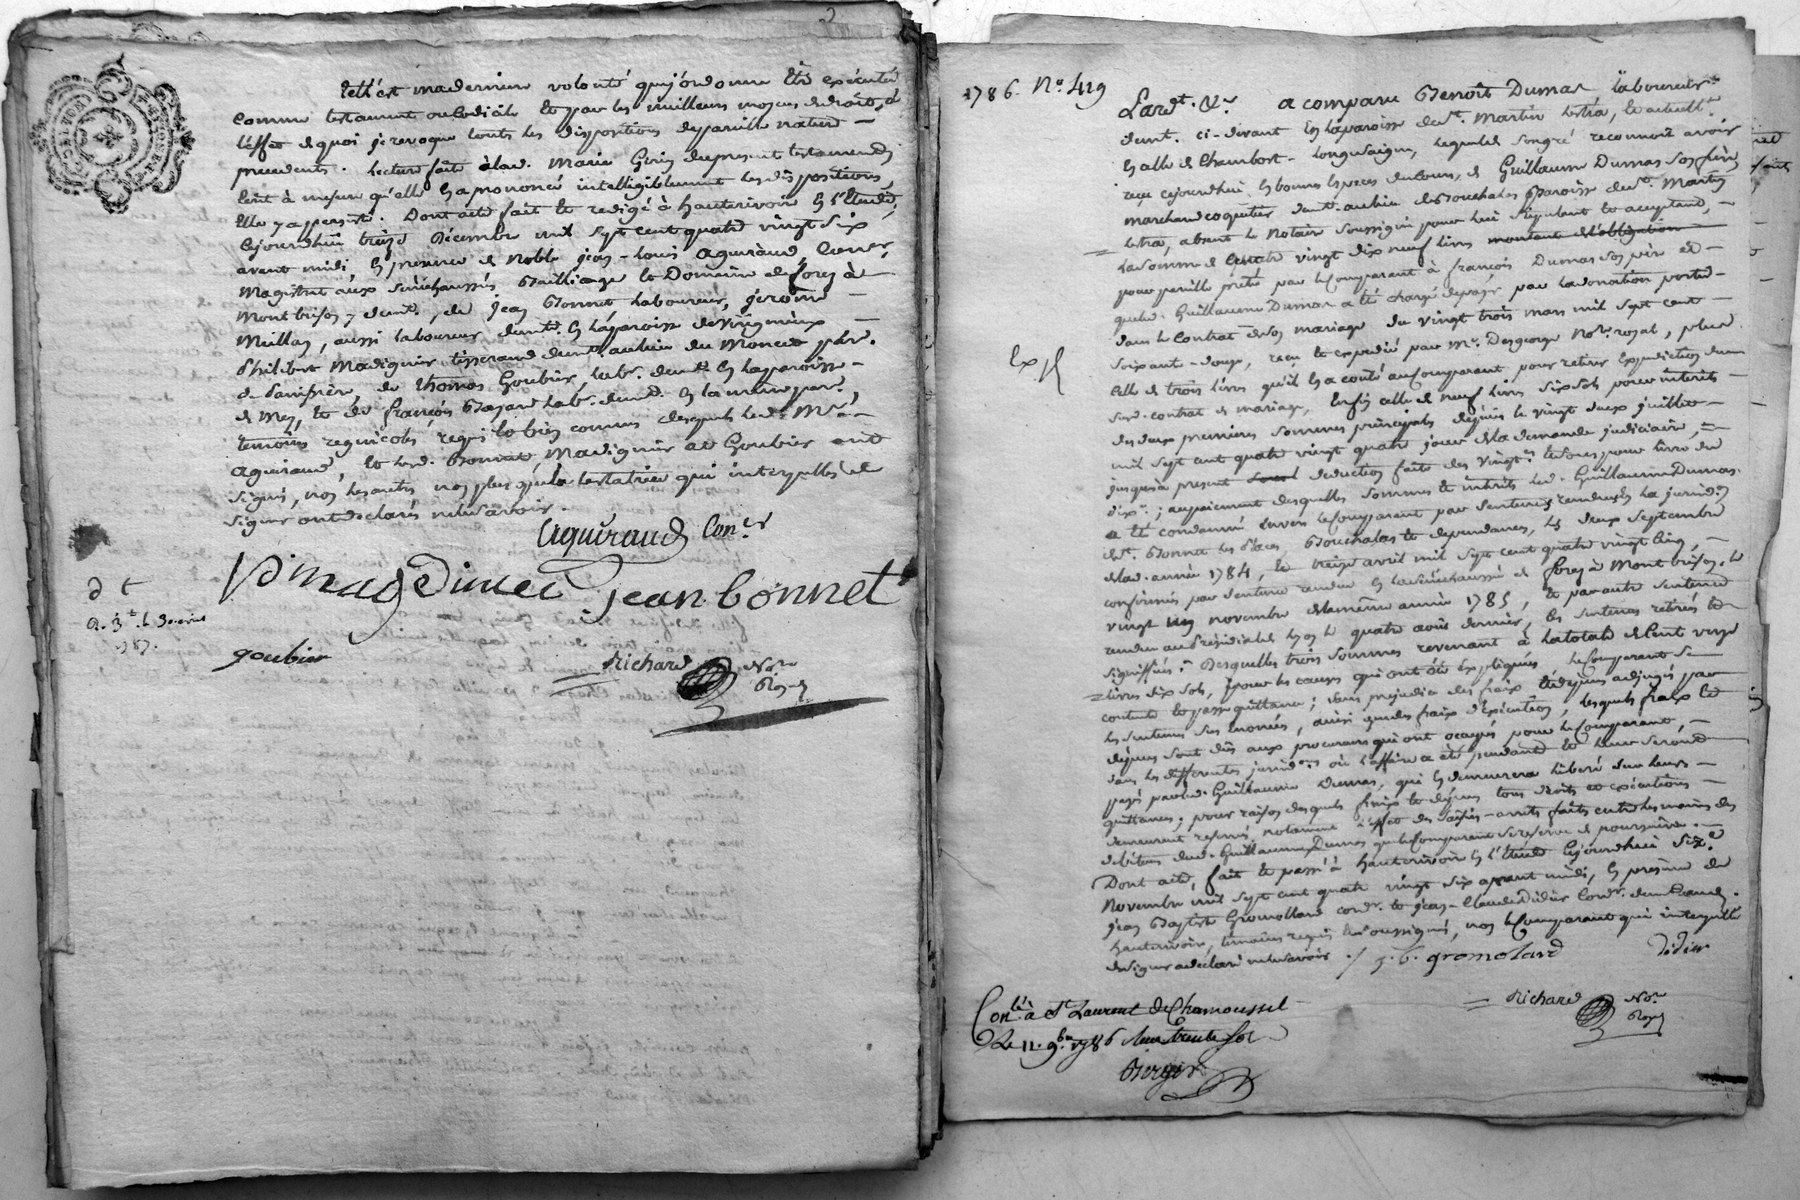 telle est ma derniere volonté que j'ordonne etre exécutée
comme testament ou codicile et par les meilleurs moyens de droit, à
l'effet de quoi je revoque touts les dispositions de pareille nature
precedents. Lecture faite à lad. Marie Gerin du present testament,
tant à mesure qu'elle en a prononcé intelligiblement les dispositions,
Elle y a persisté. Dont acte fait et redigé à hauterivoire en l'Etude,
cejourdhui treize Décembre mil sept cent quatre vingt six
avant midi, en presence de noble jean-louis aguiraud, Conser
Magistrat aux Sénéchaussée Bailliage et Domaine de forez à
Montbrison y demt, de jean Bonnet laboureur, jerome
Meillan, aussi laboureur demt. en la paroisse de Virigneux
Philibert Madignier tisserand demt. au lieu du par.
de , de thomas Goubier labr. demt. en la paroisse
de Mey, et de françois Bayard labr. demt. en la meme par.
temoins requis et bien connus desquels led. Mr.
aguiraud, et led. Bonnet Madignier et Goubier ont
signé, non les autres non plus que la testatrice qui interpellés de
signer ont declaré ne le savoir.
Aguiraud Conr
jean bonnet
d t
1787.
goubier
Richard Nore
Royal
2
1786. No. 419
Pardt. Nre a comparu Benoit Dumas laboureur
demt. ci-devant en la paroisse de st. Martin lestra, et actuellt.
en celle de Chambost-longesaigne, lequel de son gré reconnoit avoir
recu cejourdhui en bonnes especes du cours, de Guillaume Dumas son frere
marchand coquetier demt. au lieu de Bouchalas Paroisse de st. Martin
lestra, absent le Notaire soussigné pour lui stipulant et acceptant,
la somme de quatre vingt dix neuf livres montant de l'obligation
pour pareille prêtée par le comparant à françois Dumas son père et
que led. Guillaume Dumas a été chargé de payer par la donation portée
dans le Contrat de son mariage du vingt trois mars mil sept cent
soixante-douze, reçu et expedié par Mr. Desgeorge Nore royal, plus
celle de trois livres qu'il en a couté au comparant pour retirer expedition dun
susd. contrat de mariage, Enfin celle de neuf livres six sols pour intérêts
des deux premieres sommes principales depuis le vingt deux juillet
mil sept cent quatre vingt quatre jour de la demande judiciaire,
jusqu'à present deduction faite des vingt. et sous pour livre du
dixe.; au paiement desquelles sommes et intérêts led. Guillaume Dumas
a été condamné envers le comparant par sentences rendues en la juridon
de st. Bonnet les places, Bouchalas et dependances, les deux septembre
de lad. année 1784, et treize avril mil sept cent quatre vingt cinq,
confirmées par sentence rendue en la Sénéchaussée de forez à Montbrison, le
vingt novembre de la même année 1785, et par autre sentence
rendue au Présidial de Lyon le quatre aout dernier, les sentences retirées et
signiffiées. Desquelles trois sommes revenant à la totale de Cent onze
livres six sols, pour les causes qui ont été expliquées, le comparant se
contente et passe quittance; sans prejudice des frais et dépens adjugés par
les sentences sus enoncées, ainsi que des frais d'exécution, lesquels frais et
dépens sont dûs aux procureurs qui ont occupés pour le comparant,
dans les differentes juridons où l'affaire a été pendante et leur seront
payés par led. Guillaume Dumas, qui en demeurera libéré sur leurs
quittances; pour raison desquels frais et dépens tous droits et exécutions
demeurent reservés, notamment l'effet des saisies-arrêts faites entre les mains des
debiteurs dud. Guillaume Dumas que le comparant se reserve de poursuivre.
Dont acte, fait et passé à hauterivoire en l'étude cejourdhui size
Novembre mil sept cent quatre vingt six avant midi, en presence de
jean Baptiste Gromollard cordr. et jean-Claude Didier Cordr. demeurans
hauterivoire, temoins requis et soussignés, non le comparant qui interpellé
de signer a declaré ne le savoir ./. j. b. gromolard Didier
Exp
Richard Nore
Royal
Conlé à St Laurent de Chamousset
Le 11. 9bre 1786 Recu trente sols
Berger